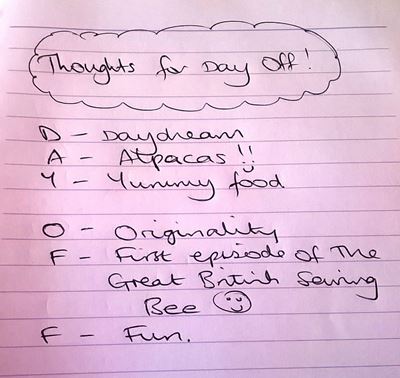 Thoughts for Day Off!
D - Daydream
A - Alpacas!!
Y - Yummy food
O - Originality
F - First episode of The
Great British Sewing
Bee
F - Fun.